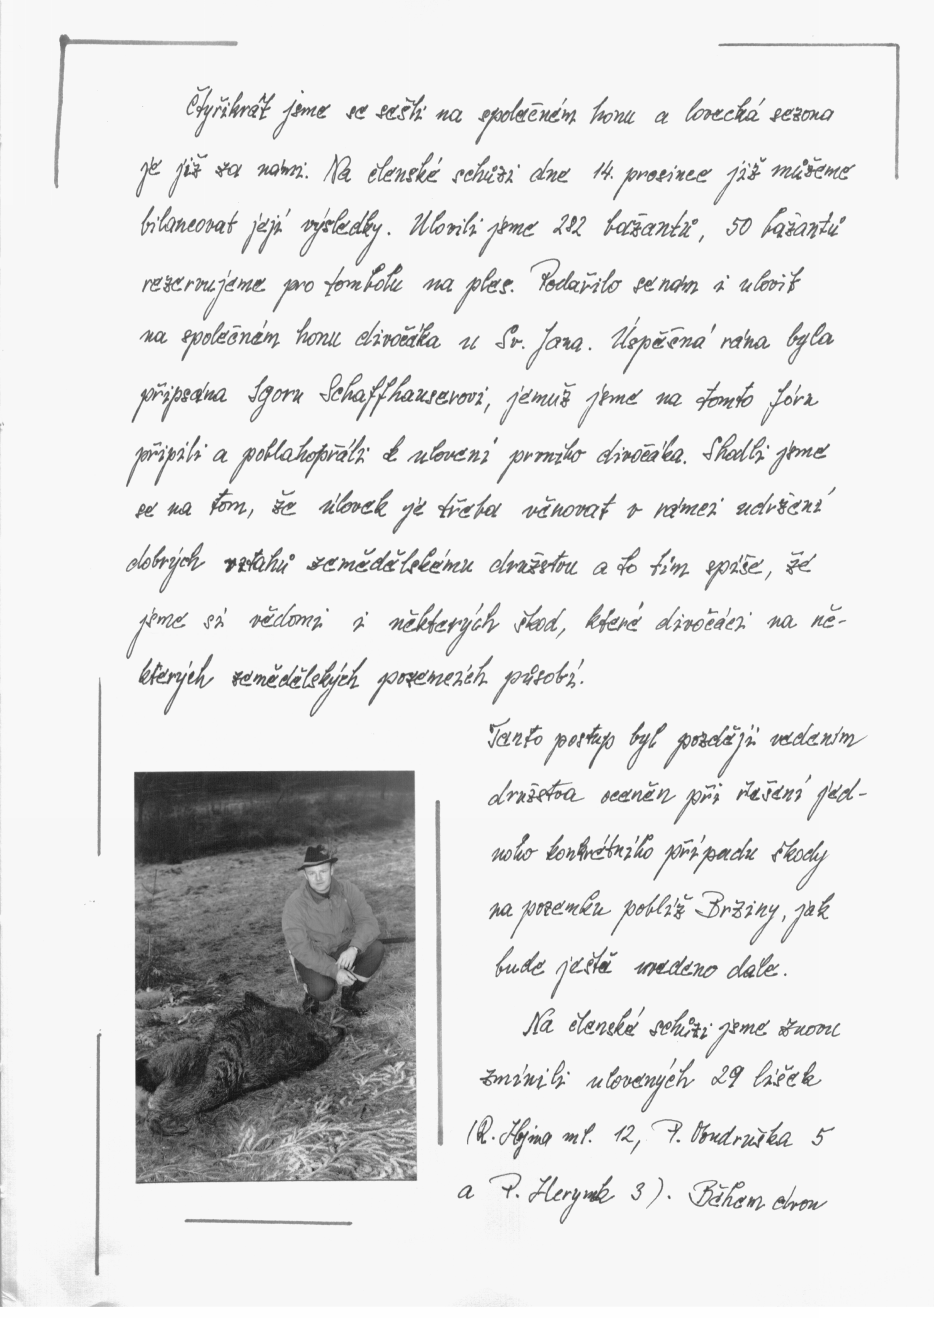 Čtyřikrát jsme se sešli na společném honu a lovecká sezona
je již za námi. Na členské schůzi dne 14. prosince již můžeme
bilancovat její výsledky. Ulovili jsme 282 bažantů, 50 bažantů
rezervujeme pro tombolu na ples. Podařilo se nám i ulovit
na společném honu divočáka u Sv. Jana. Úspěšná rána byla
připsána Igoru Schaffhauserovi, jemuž jsme na tomto fóru
připili a poblahopřáli k ulovení prvního divočáka. Shodli jsme
se na tom, že úlovek je třeba věnovat v rámci udržení
dobrých vztahů zemědělskému družstvu a to tím spíše, že
jsme si vědomi i některých škod, které divočáci na ně-
kterých zemědělských pozemcích působí.
Tento postup byl později vedením
družstva oceněn při řešení jed-
noho konkrétního případu škody
na pozemku poblíž Brziny, jak
bude ještě uvedeno dále.
Na členské schůzi jsme znovu
zmínili ulovených 29 lišek
(R. Hejna ml. 12, P. Vondruška 5
a P. Herynk 3). Během dvou